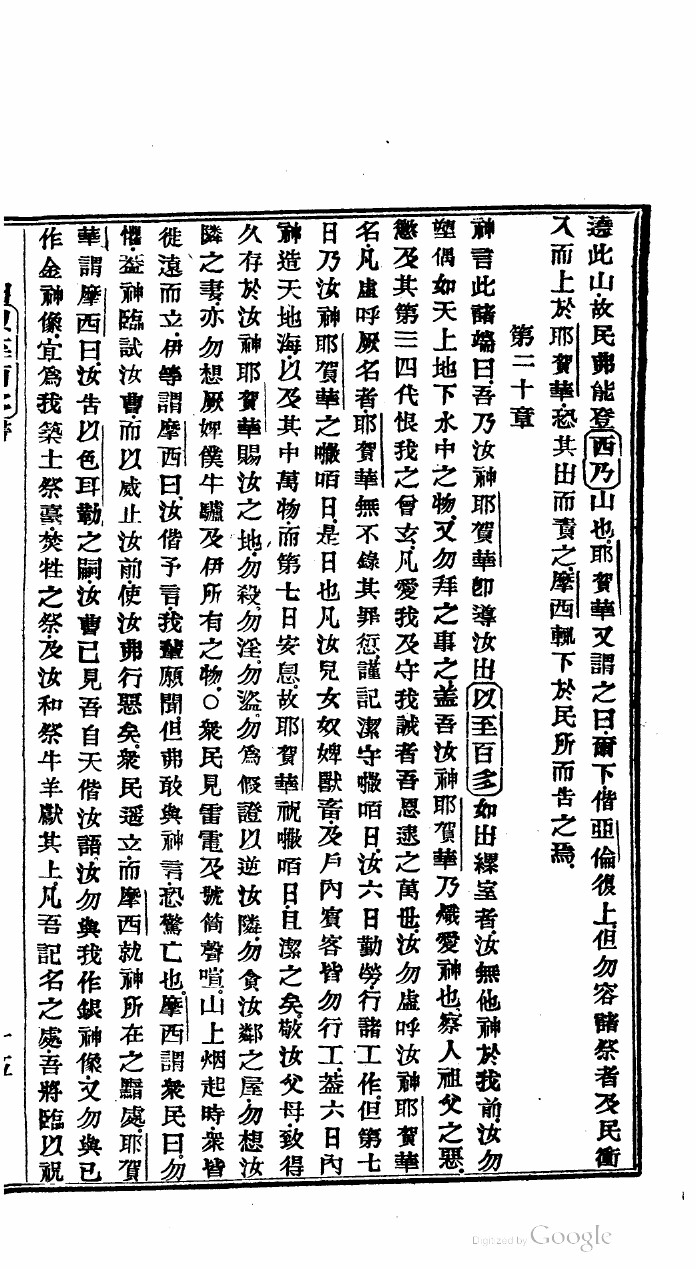 遶此山、故民弗能登西乃山也、耶賀華又謂之曰、爾下偕亞倫復上、但勿容諸祭者及民衝
入而上於耶賀華、恐其出而責之、摩西輒下於民所而告之焉、
第二十章
神言此諸端曰、吾乃汝神耶賀華卽導汝出以至百多如出縲室者、汝無他神於我前汝勿
塑偶如天上地下水中之物、又勿拜之事之、蓋吾汝神耶賀華乃熾愛神也、察人祖父之惡、
懲及其第三四代恨我之曾玄、凡愛我及守我誡者吾恩逮之萬世、汝勿虛呼汝神耶賀華
名、凡虛呼厥名者、耶賀華無不錄其罪愆、謹記潔守𠿕咟日、汝六日勤勞、行諸工作、但第七
日乃汝神耶賀華之𠿕咟日、是日也凡汝兒女奴婢獸畜、及戶內賓客皆勿行工、蓋六日內
神造天地海、以及其中萬物、而第七日安息、故耶賀華祝𠿕咟日、且潔之矣、敬汝父母、致得
久存於汝神耶賀華賜汝之地、勿殺、勿淫、勿盜、勿為假證以逆汝隣、勿貪汝鄰之屋、勿想汝
隣之妻、亦勿想厥婢僕牛驢及伊所有之物、○衆民見雷電及號筒聲喧、山上烟起時、衆皆
徙遠而立、伊等謂摩西曰、汝偕予言、我輩願聞、但弗敢與神言、恐驚亡也、摩西謂衆民曰、勿
懼、蓋神臨試汝曹、而以威止汝前、使汝弗行惡矣、衆民遥立、而摩西就神所在之黯處、耶賀
華謂摩西曰、汝告以色耳勒之嗣、汝曹已見吾自天偕汝語、汝勿與我作銀神像、又勿與已
作金神像、宜為我築土祭臺、焚牲之祭、及汝和祭牛羊獻其上、凡吾記名之處、吾將臨以祝
十五
Digitized by Google